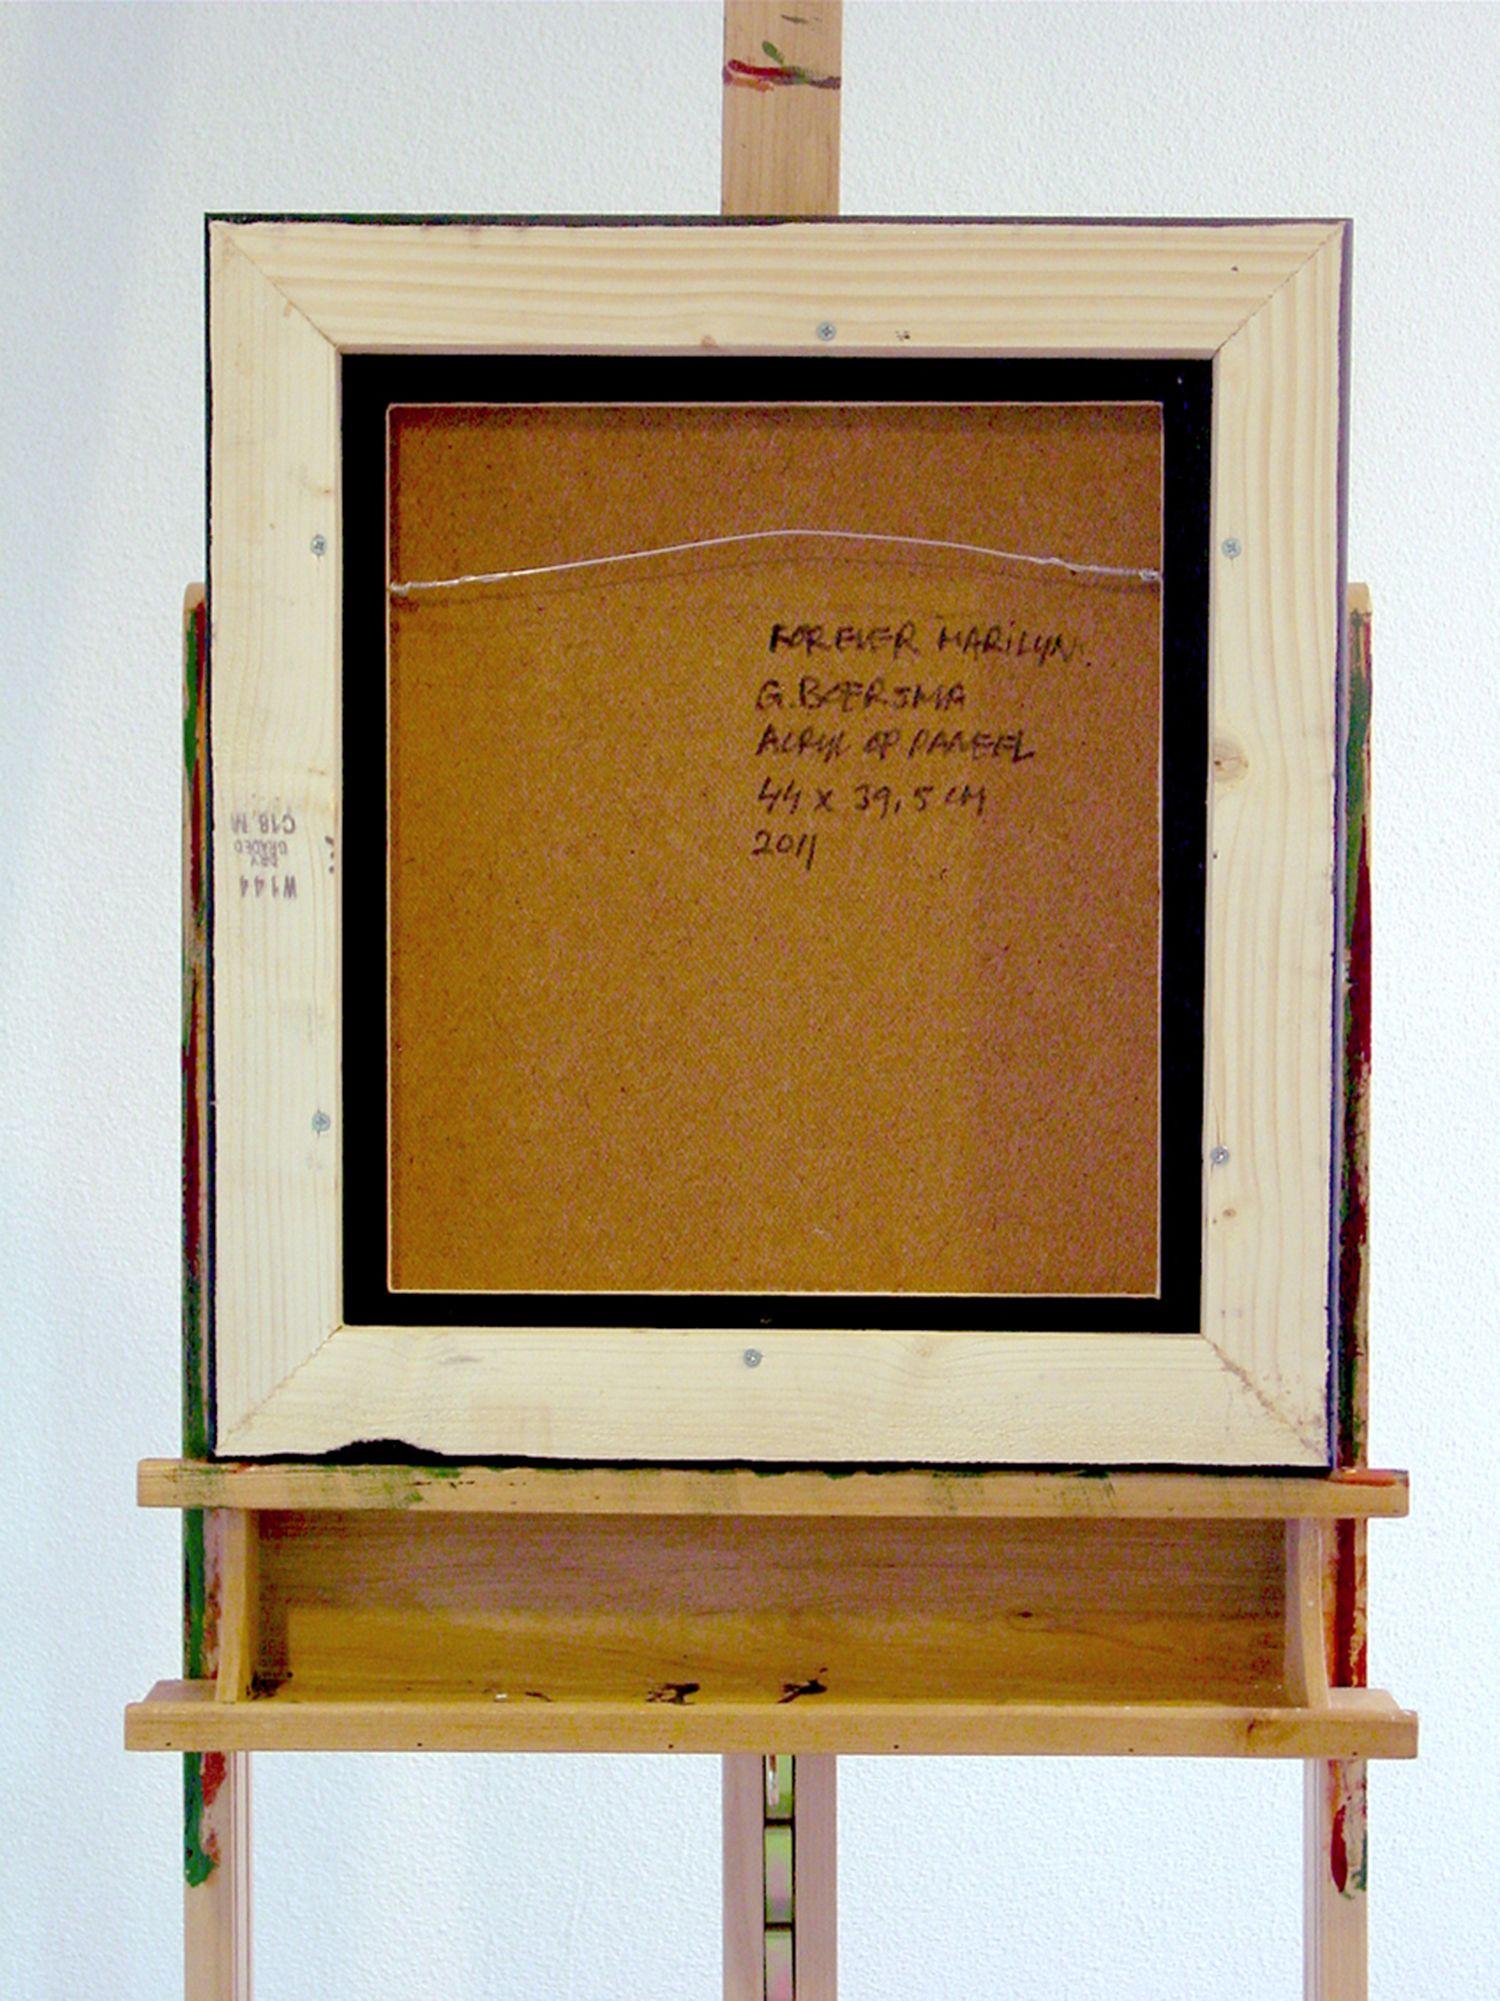 FOREVER MARILYN.
G. BOERSMA
ACRYL OP PANEEL
44 x 39,5 CM
2011
W144
DRY
GRADED
C18, M